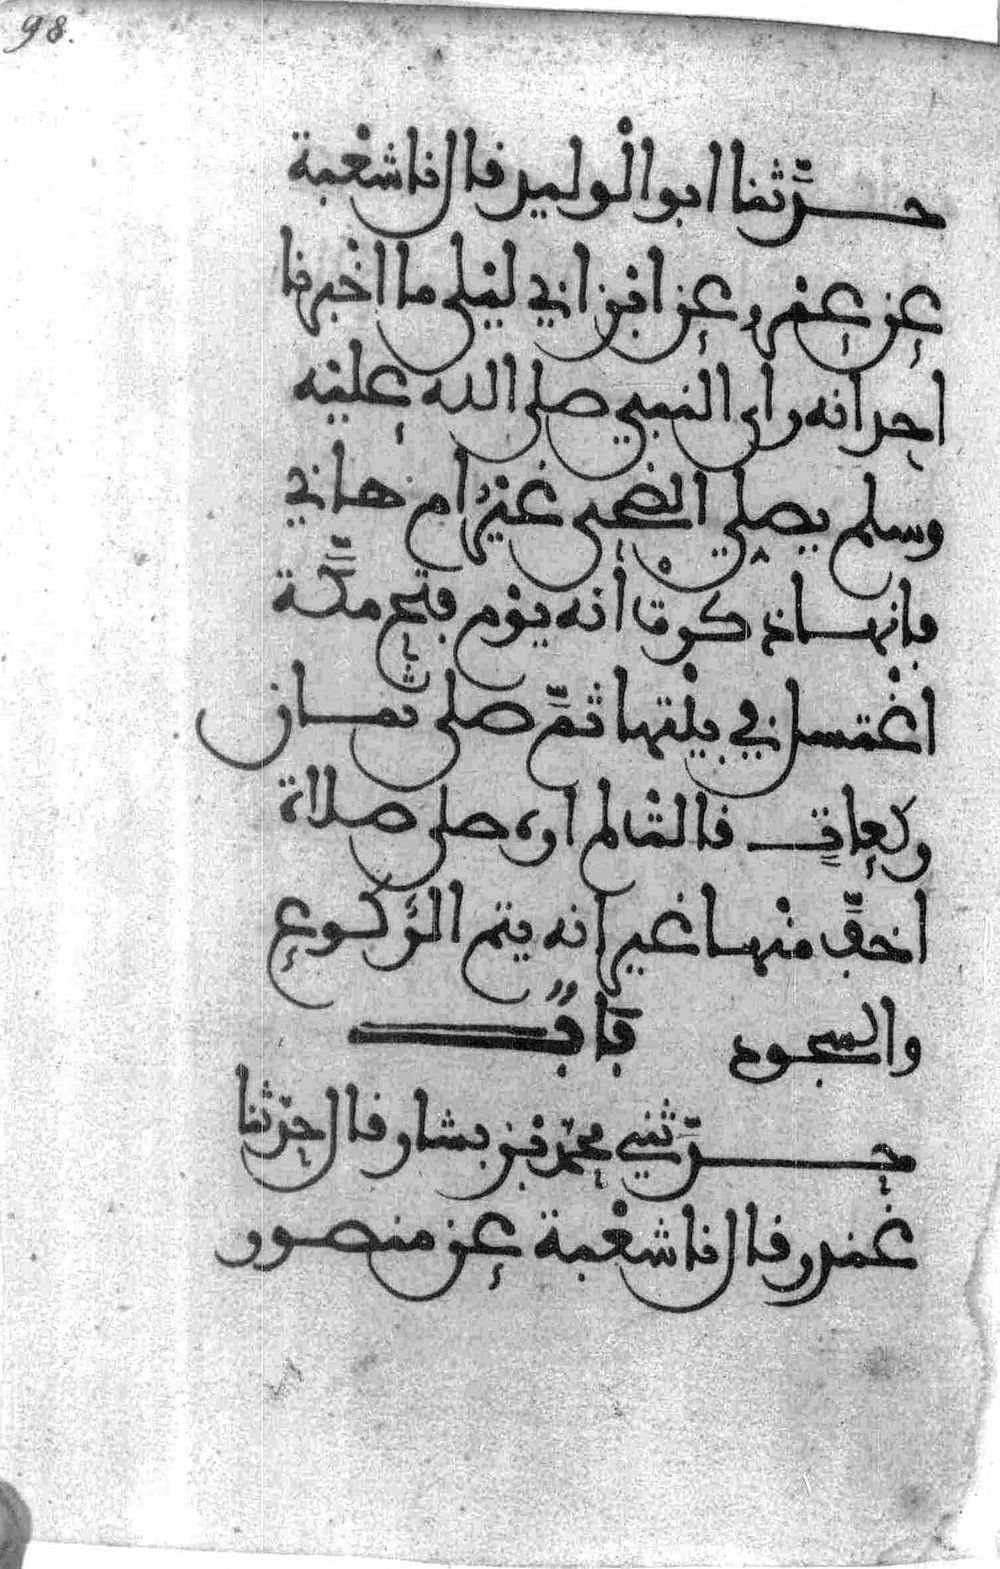 98.
حدثنا ابو الوليد قال نا شعبة
عن عمرو عن ابن ابي ليلى ما اخبرنا
احد انه راى النبي صلى الله عليه
وسلم يصلي الضحى غير ام هاني
فانها ذكرت انه يوم فتح مكة
اغتسل في بيتها ثم صلى ثمان
ركعات قالت لم اره صلى صلاة
اخف منها غير انه يتم الركوع
والسجود باب
حدثني محمد بن بشار قال حدثنا
غندر قال نا شعبة عن منصور